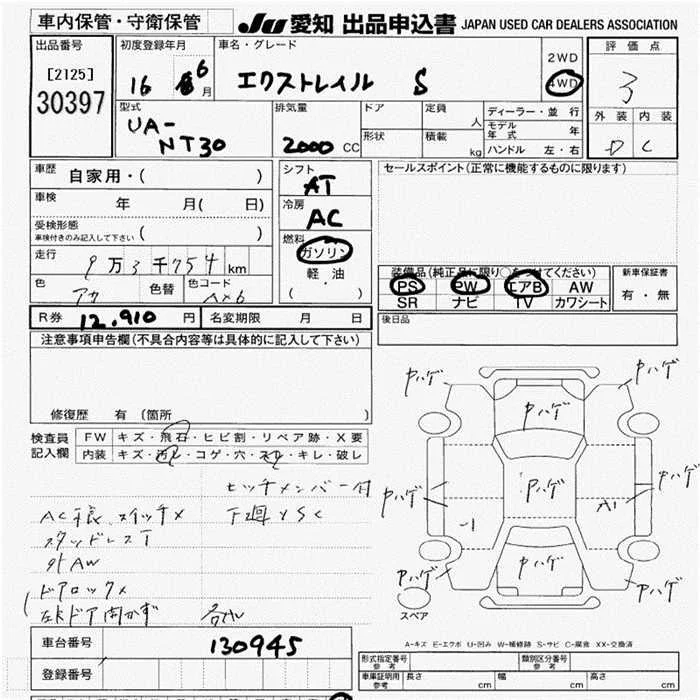 車内保管・守衛保管
JU 愛知 出品申込書 JAPAN USED CAR DEALERS ASSOCIATION
出品番号
[2125]
30397
初度登録年月
16 6 月
車名・グレード
エクストレイル S
2WD
4WD
評価点
3
外装 内装
D C
型式
UA-
NT30
排気量
2000 CC
ドア
定員
人
形状
積載
kg
ディーラー・並行
モデル年式 年
ハンドル 左・右
車歴
自家用・( )
車検
年 月( 日)
受検形態
車検付きのみ記入して下さい ( )
走行
9万3千754 km
色
アカ
色替
色コード
AX6
シフト
AT
冷房
AC
燃料
ガソリン
軽・油
( ・ )
セールスポイント(正常に機能するものに限ります)
装備品(純正品に限り○をつけてください)
PS PW エアB AW
SR ナビ TV カワシート
新車保証書
有・無
後日品
R券 12.910 円
名変期限 月 日
注意事項申告欄(不具合内容等は具体的に記入して下さい)
修復歴 有 (箇所 )
検査員
記入欄
FW キズ・飛石・ヒビ割・リペア跡・X要
内装 キズ・汚レ・コゲ・穴・スレ・キレ・破レ
AC スイッチ×
スタッドレスT
外AW
ドアロック×
ドア開かず
下廻りSC
車台番号
130945
登録番号
ヤハゲ
ヤハゲ
ヤハゲ
ヤハゲ
ヤハゲ
ヤハゲ
A1
ヤハゲ
ヤハゲ
ヤハゲ
スペア
A-キズ E-エクボ U-凹み W-補修跡 S-サビ C-腐食 XX-交換済
形式指定番号
参考
類別区分番号
参考
車庫証明用
参考
長さ cm
幅 cm
高さ cm